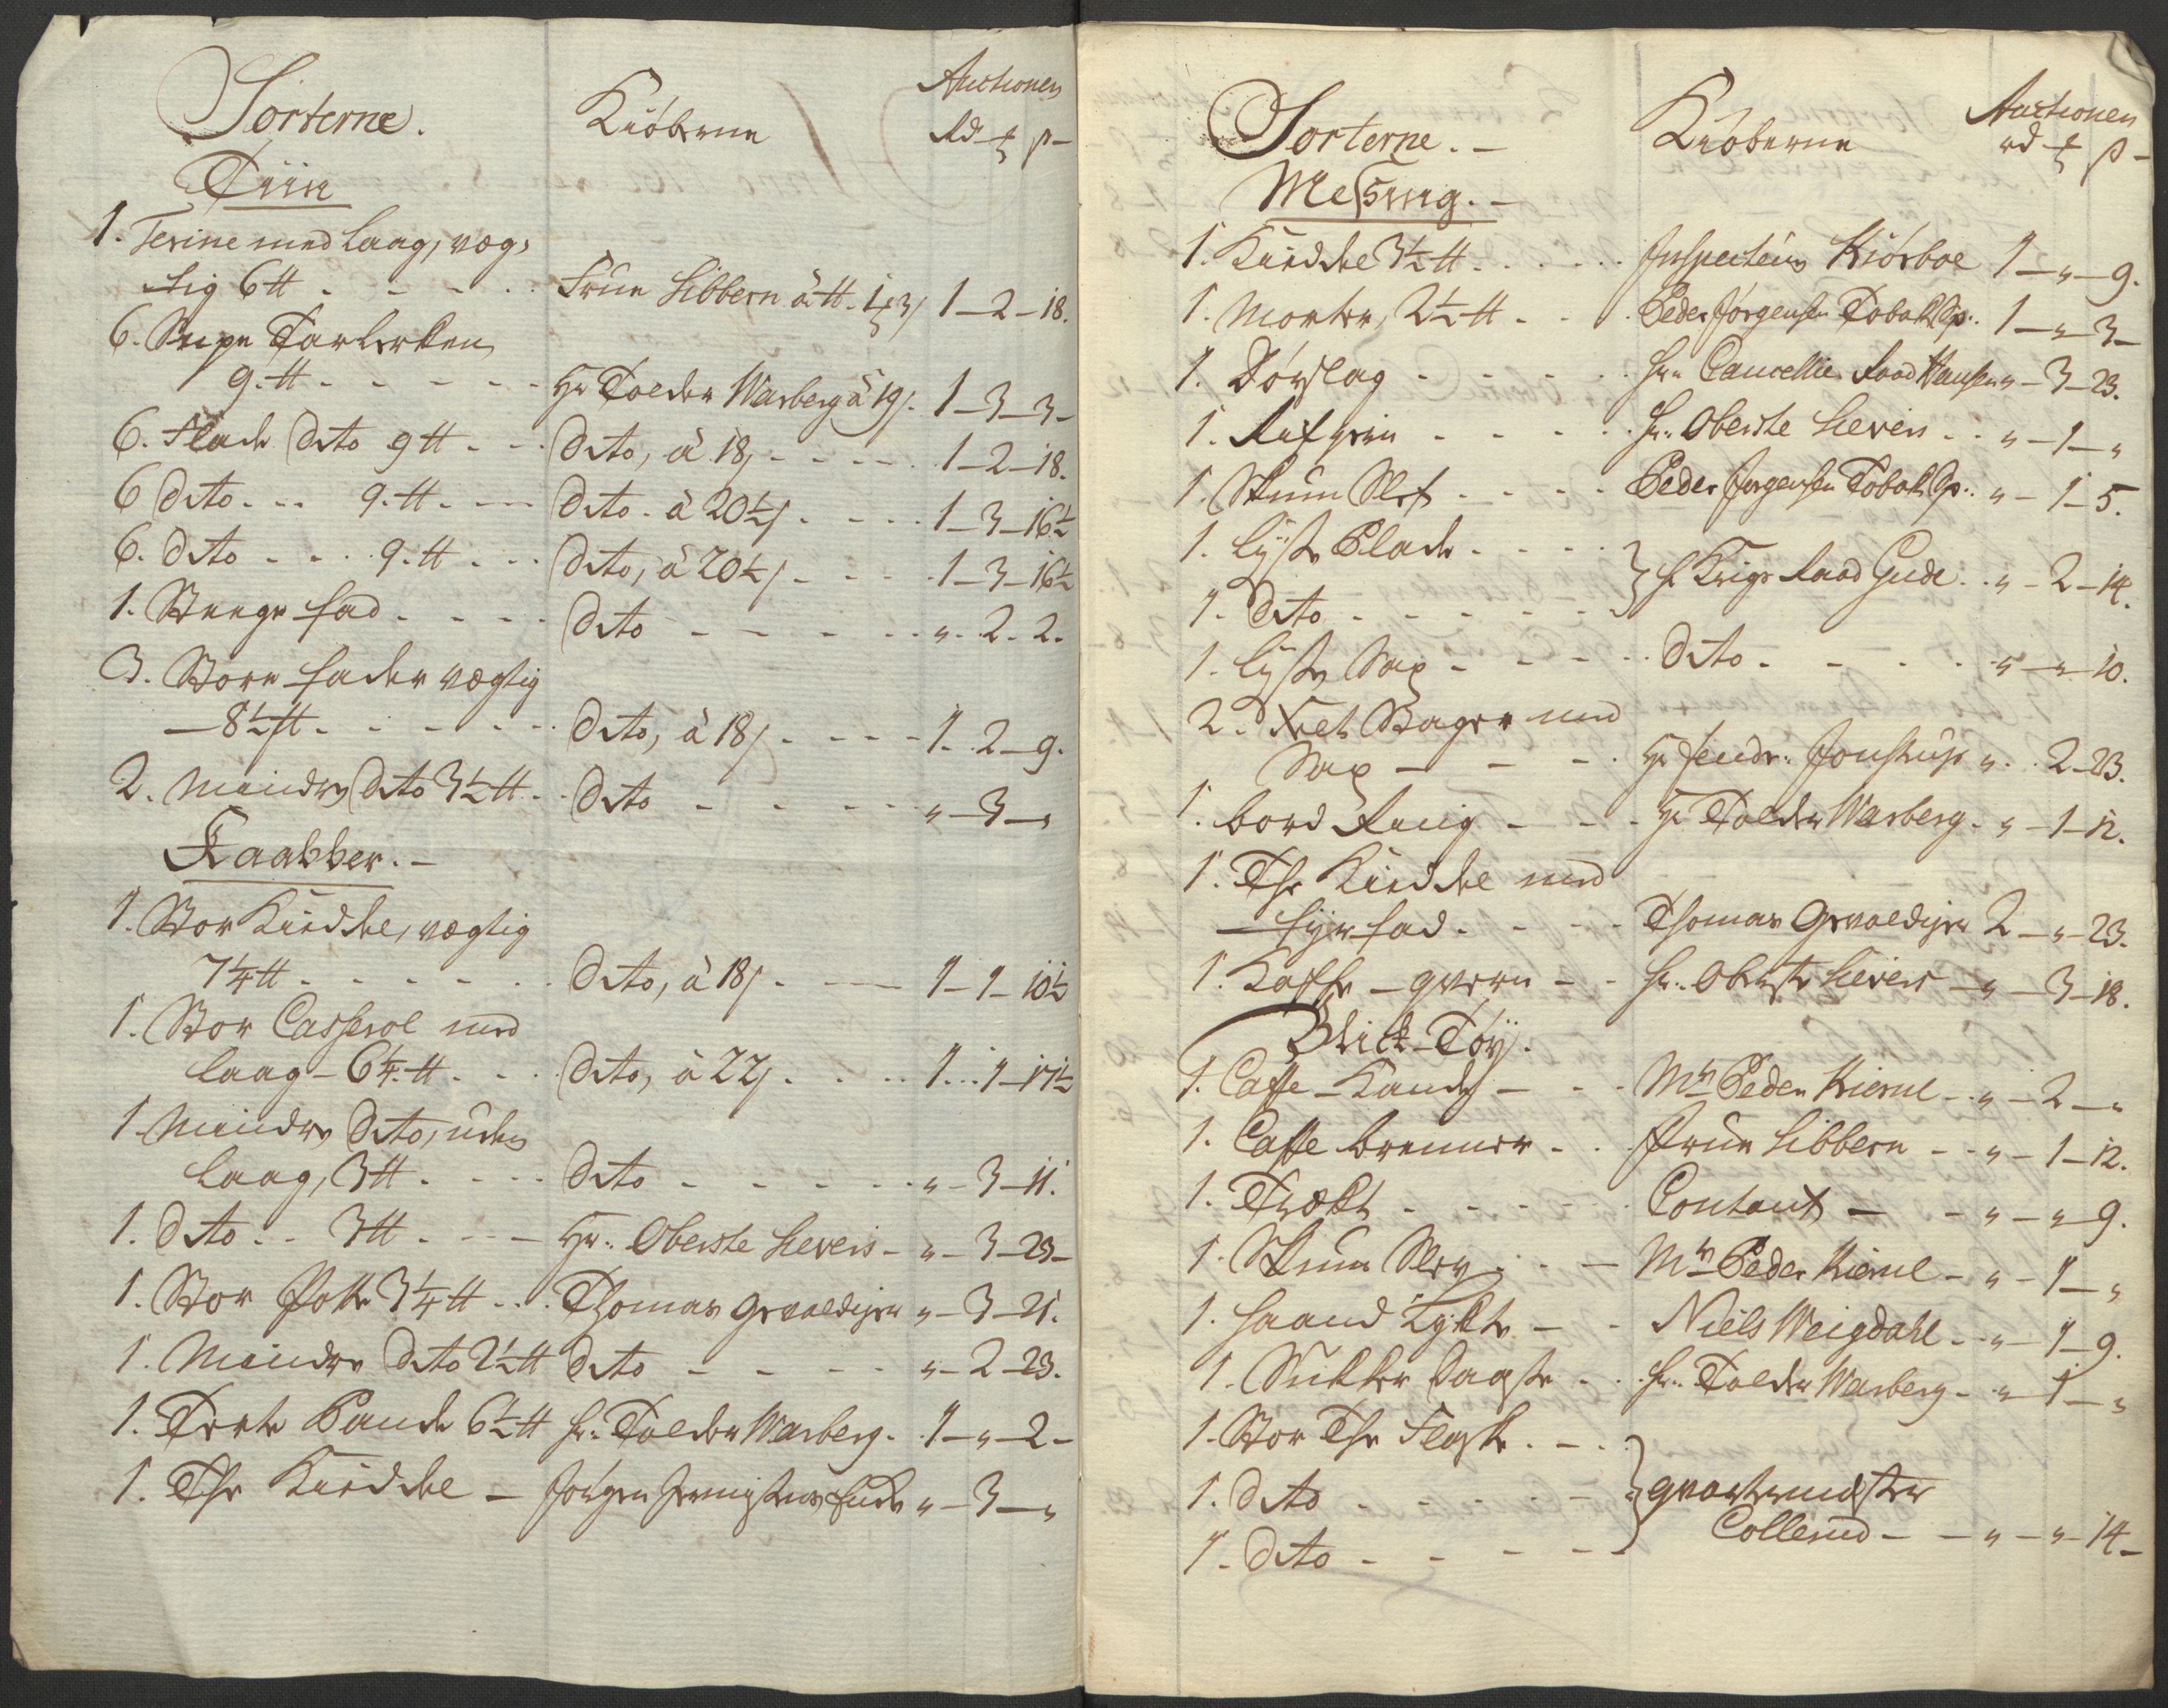 Sorterne.
Kiöberne
Auctionen
Rd ß
Tiin
1. Terine med Laag, væg-
tig 6 ℔ - - - Frue Sibbern à ℔ 1 3 1-2-18.
6. Supe Tarlerken
9. ℔ - - - - Hr Tolder Warberg à 19 1-3-3-
6. Flade Dito 9 ℔ - - Dito, à 18 - - - 1-2-18.
6 Dito - - 9. ℔ - - Dito - à 20½ - - - 1-3-16½
6. Dito - - 9. ℔ - - Dito, à 20½ - - - 1-3-16½
1. fad - - - Dito - - - - „-2-2.
3. Store fader vægtig
8½ ℔ - - - - Dito, à 18 - - - 1-2-9.
2. Mindre Dito 3½ ℔ - Dito - - - „-3-„
Kaabber.-
1. Stor Kiedtel, vægtig
7¼ ℔ - - - - Dito, à 18 - - 1-1-10½
1. Stor Casserol med
Laag - 6¼ ℔ - - Dito, à 22 - - - 1-1-17½
1. Mindre Dito, uden
Laag, 3 ℔ - - - Dito - - - - „-3-11.
1. Dito - - 3 ℔ - - - Hr. Oberste Sievers - „-3-23-
1. Stor Potte 3¼ ℔ - - Thomas Gevaldiger „-3-21.
1. Mindre Dito 2½ ℔ Dito - - - - „-2-23.
1. Terte Pande 6½ ℔ Hr. Tolder Warberg - 1-„-2-
1. The Kiedtel - Jörgen „-3-„
Sorterne.-
Kiöberne
Auctionen
rd ß
Messing.-
1. Kiedtel 3½ ℔ - - - Inspecteur Kiörboe 1-„-9.
1. Morter, 2½ ℔ - - Peder Jörgensen Tobaksp: 1-„-3-
1. Dörslag - - - - Hr. Cancellie Raad Hansen „-3-23.
1. - - - - Hr. Oberste Sievers - - „-1-„
1. Skum Slef - - - Peder Jörgensen Tobaksp: „-1-5.
1. Lyse Plade - - -
1. Dito - - - - - Hr Krigs Raad Gude - „-2-14.
1. Lyse Sax - - - Dito - - - „-„-10.
2. Stager med
Sax - - - Hr Jonstrup „-2-23.
1. bord Ring - - - Hr Tolder Warberg - „-1-12.
1. The Kiedtel med
fyrfad - - - Thomas Gevaldiger 2-„-23.
1. Kaffe - qvern - - Hr. Oberste Sievers - „-3-18.
Blick-Töy.
1. Caffe - Kande - - Mr Peder Kierul - „-2-„
1. Caffe brenner - - Frue Sibbern - - „-1-12.
1. Trækt - - - - Contant - - „-„-9.
1. Skum Slev - - - Mr Peder Kierul - „-1-„
1. Haand Lykte - - Niels Weigdahl - „-1-9.
1. Sukker Daase - - Hr. Tolder Warberg - „-1-„
1. Stor The Flaske - -
1. Dito - - - - - qvartermester
1. Dito - - - - - Collerud - - „-„-14-